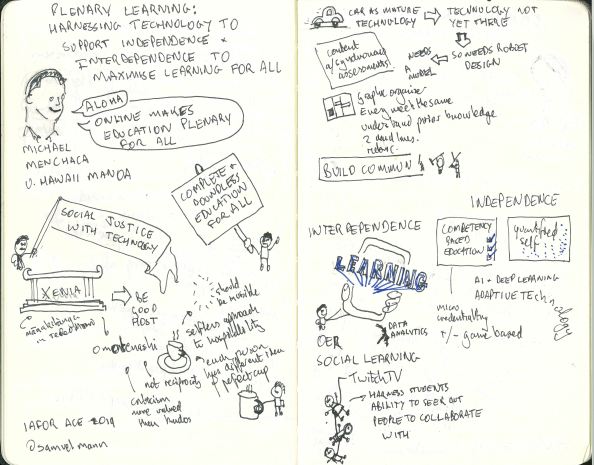 PLENARY LEARNING:
HARNESSING TECHNOLOGY TO
SUPPORT INDEPENDENCE +
INTERDEPENDENCE TO
MAXIMISE LEARNING FOR ALL
ALOHA
ONLINE MAKES
EDUCATION PLENARY
FOR ALL
MICHAEL
MENCHACA
U. HAWAII MANOA
COMPLETE +
BOUNDLESS
EDUCATION
FOR ALL
SOCIAL JUSTICE
WITH TECHNOLOGY
XENIA
BE
GOOD
HOST
should
be invisible
selfless approach
to hospitality
every person
has different idea
perfect cup
not reciprocity
criticism
more valued
than kudos
IAFOR ACE 2019
@samuelmann
CAR AS MATURE
TECHNOLOGY
TECHNOLOGY NOT
YET THERE
SO NEEDS ROBUST
DESIGN
NEEDS
A
MODEL
content
a/synchronous
assessments
Graphic organiser
Every week the same
understand prior knowledge
2 deadlines
BUILD COMMUN
INDEPENDENCE
INTERDEPENDENCE
COMPETENCY
BASED
EDUCATION
quantified
self
LEARNING
AI + DEEP LEARNING
ADAPTIVE Technology
micro
credentialling
+/- game based
DATA
ANALYTICS
OER
SOCIAL LEARNING
TwitchTV
HARNESS STUDENTS
ABILITY TO SEEK OUT
PEOPLE TO COLLABORATE
WITH